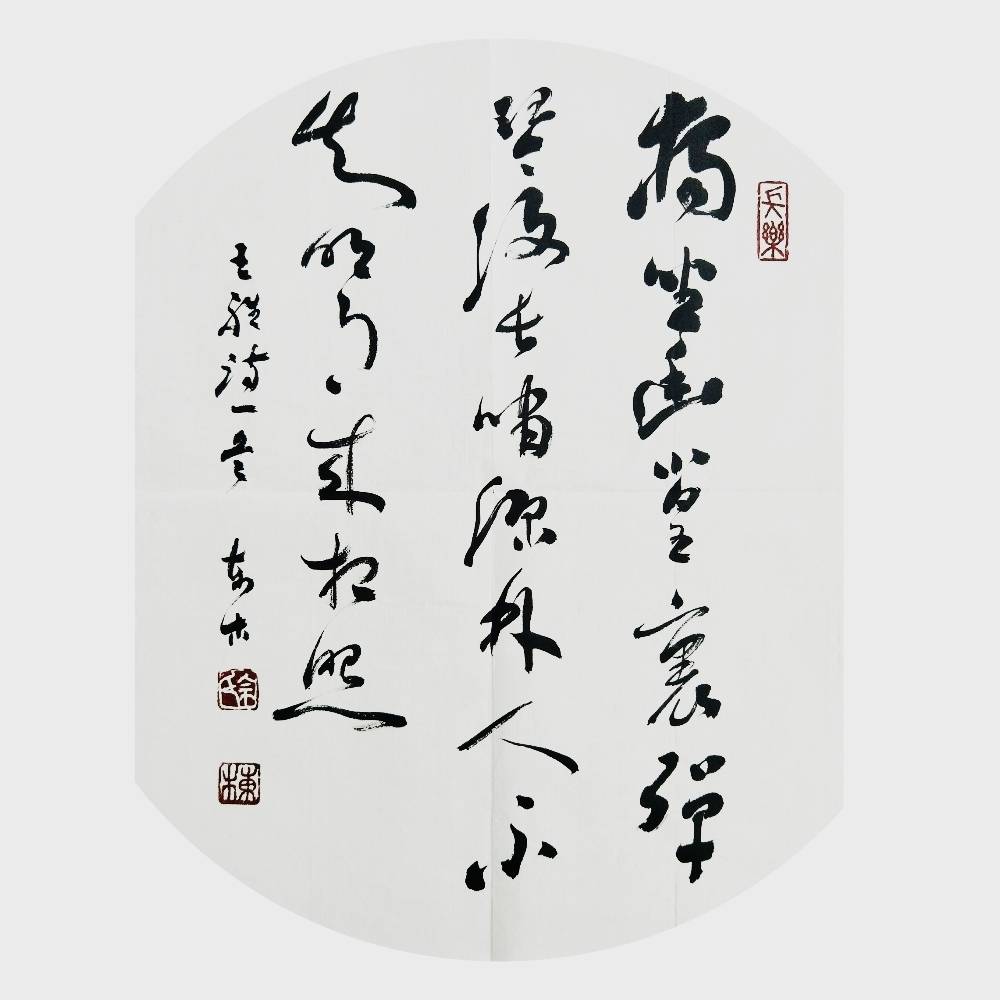 長樂
獨坐幽篁裏彈
琴復長嘯深林人不
知明月來相照
王維詩一首 東木